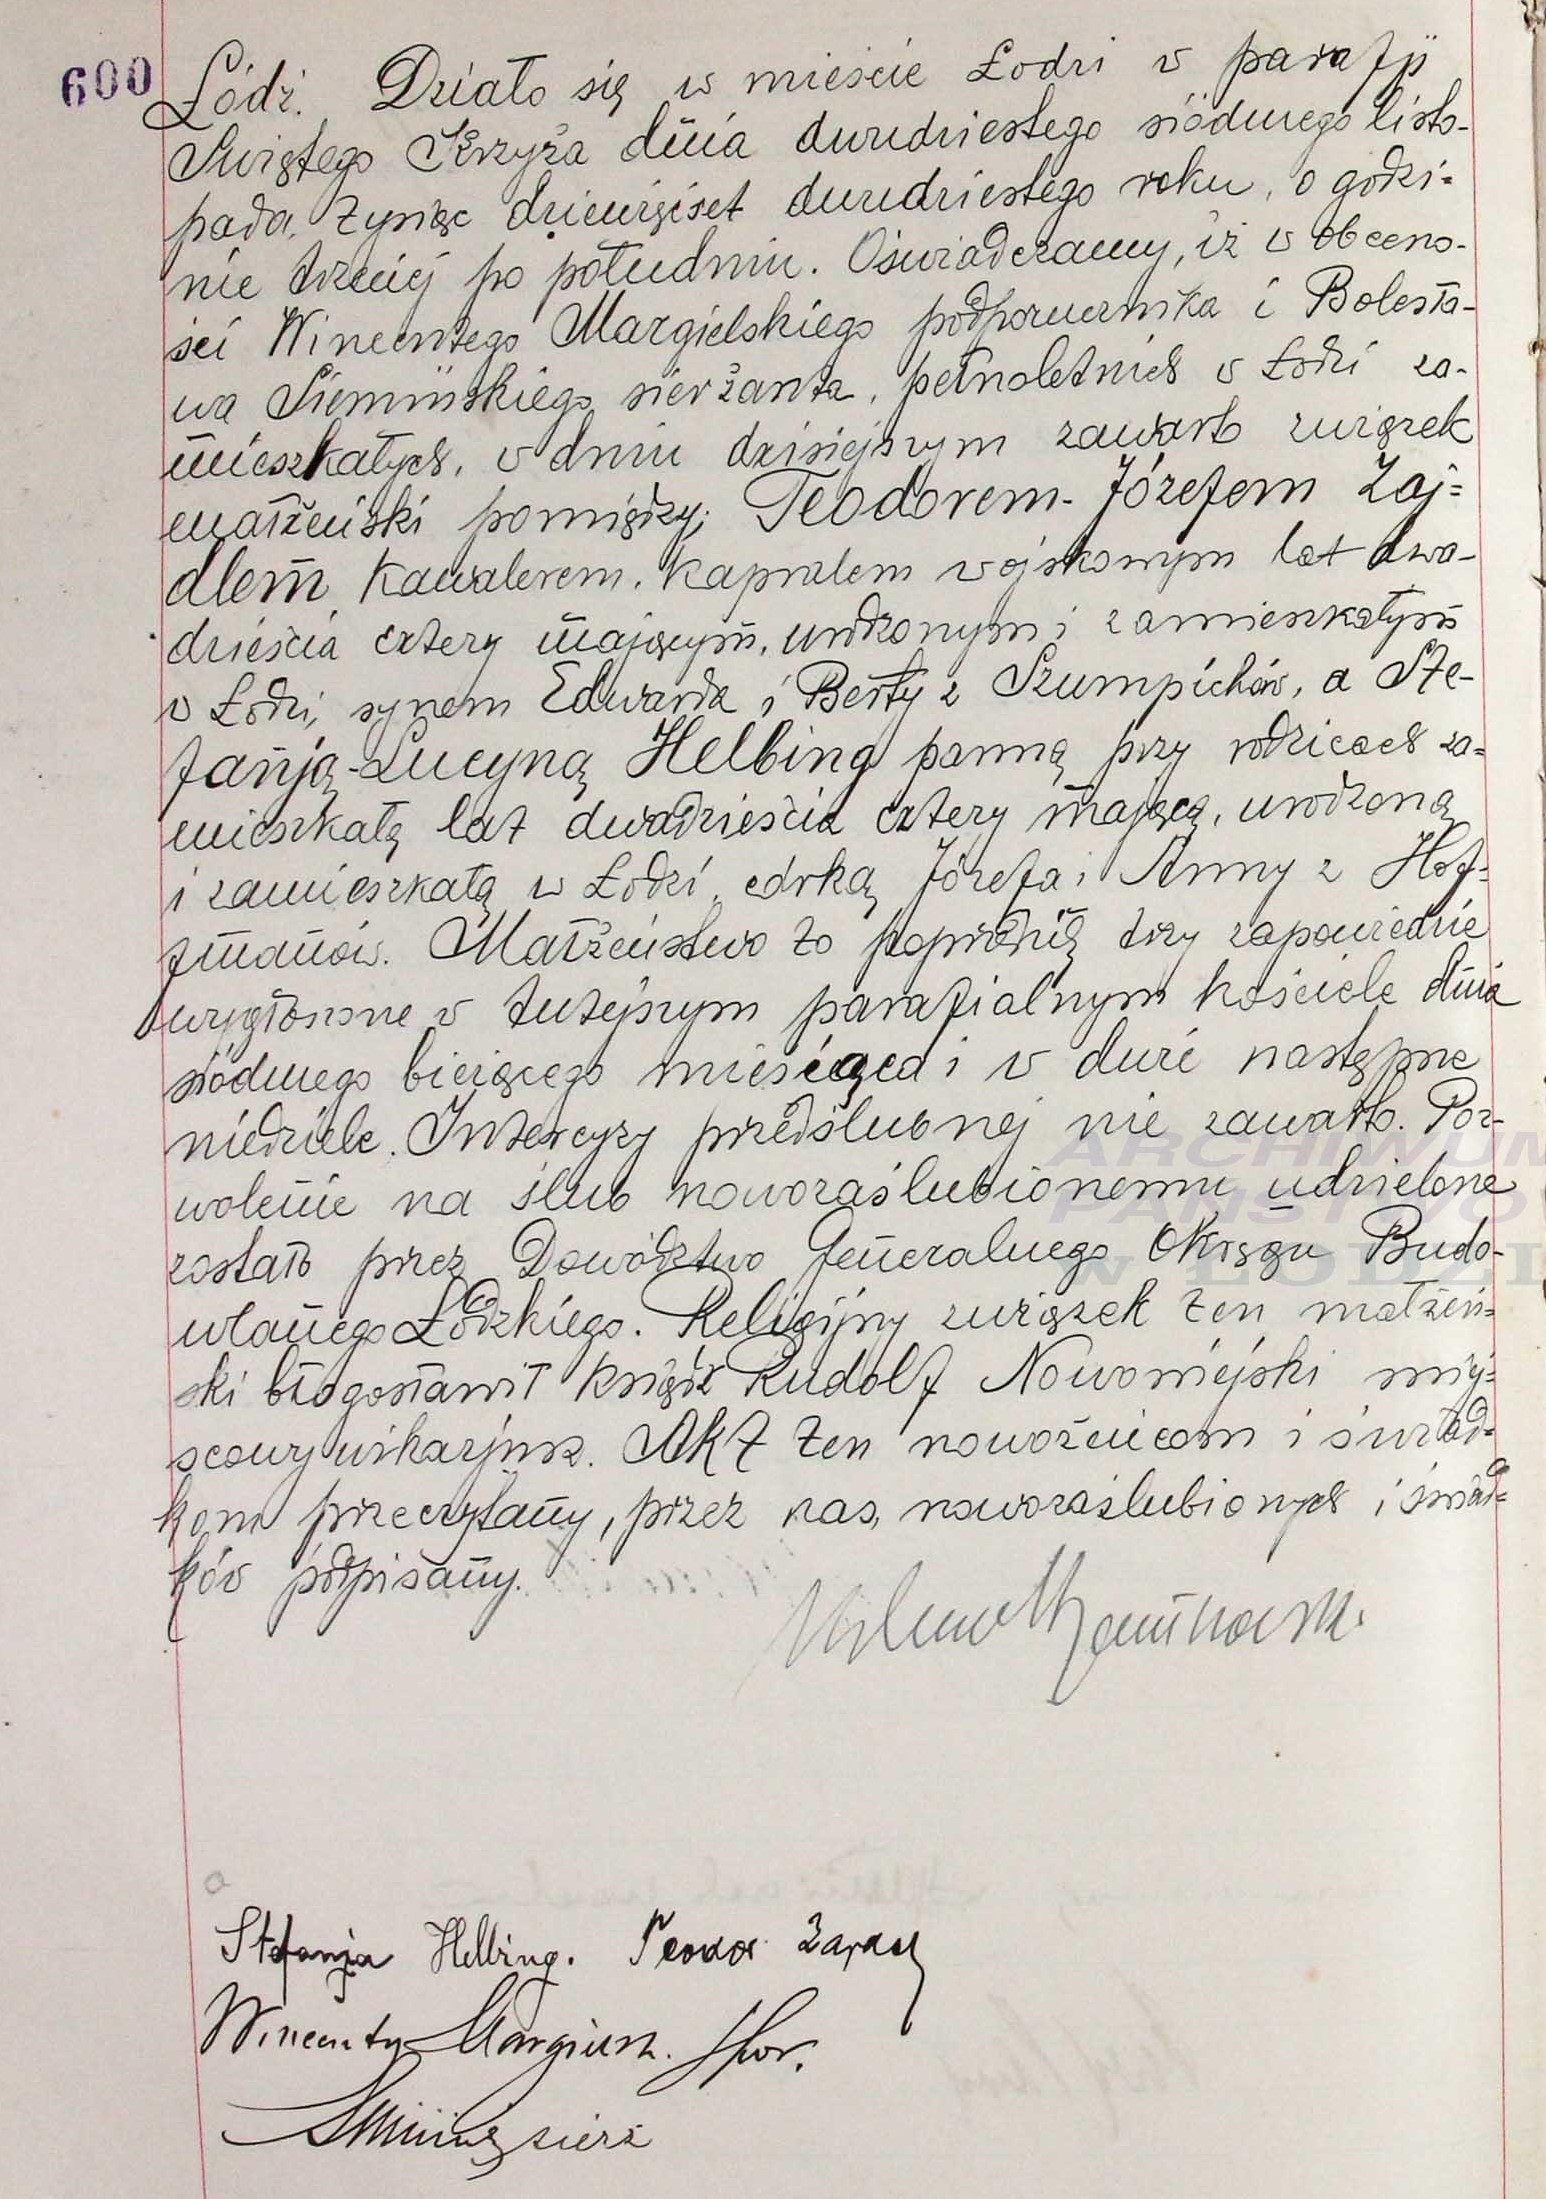 600 Łódź. Działo się w mieście Łodzi w parafji
Świętego Krzyża dnia dwudziestego siódmego listo-
pada, tysiąc dziewięćset dwudziestego roku, o godzi-
nie trzeciej po południu. Oświadczamy, iż w obecno-
ści Wincentego Margielskiego podporucznika i Bolesła-
wa Siemińskiego sierżanta, pełnoletnich w Łodzi za-
mieszkałych, w dniu dzisiejszym zawarto związek
małżeński pomiędzy: Teodorem-Józefem Zaj-
dlem, kawalerem, kapralem wojskowym lat dwa-
dzieścia cztery mającym, urodzonym i zamieszkałym
w Łodzi, synem Edwarda i Berty z Szumpichów, a Ste-
fanją-Lucyną Helbing panną przy rodzicach za-
mieszkałą lat dwadzieścia cztery mającą, urodzoną
i zamieszkałą w Łodzi, córką Józefa i Anny z Hof-
fmanów. Małżeństwo to poprzedziły trzy zapowiedzie
wygłoszone w tutejszym parafialnym kościele dnia
siódmego bieżącego miesiąca i w dwie następne
niedziele. Intercyzy przedślubnej nie zawarto. Poz-
wolenie na ślub nowozaślubionemu udzielone
zostało przez Dowództwo Generalnego Okręgu Budo-
wlanego Łódzkiego. Religijny związek ten małżeń-
ski błogosławił ksiądz Rudolf Nowowiejski miej-
scowy wikarjusz. Akt ten nowożeńcom i świad-
kom przeczytany, przez nas, nowozaślubionych i świad-
ków podpisany.
Stefanja Helbing. Teodor Zajdel
Wincenty ppor.
sierż
ARCHIWUM
PAŃSTWO
W ŁODZI